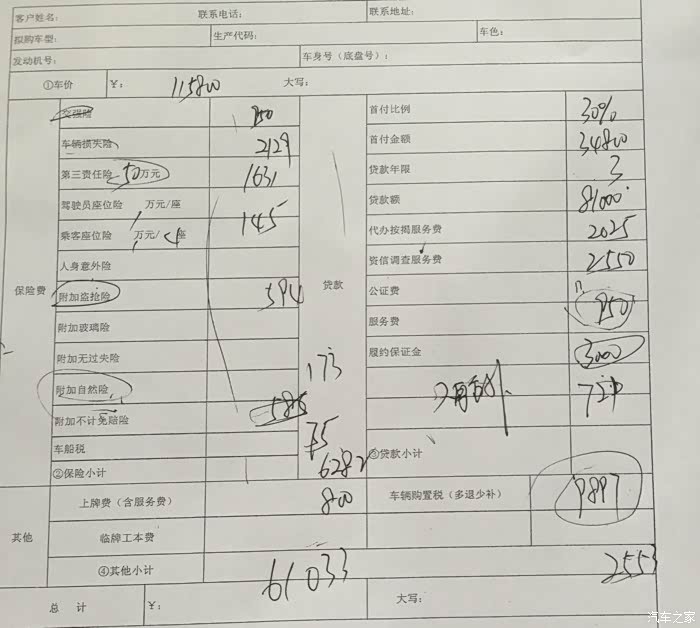 客户姓名: 联系电话: 联系地址:
拟购车型: 生产代码: 车色:
发动机号: 车身号(底盘号):
①车价 ¥: 115800 大写:
保险费
交强险 950
车辆损失险 2129
第三责任险 50万元 1631
驾驶员座位险 万元/座
乘客座位险 万元/4座 145
人身意外险
附加盗抢险 594
附加玻璃险
附加无过失险
附加自然险 173
附加不计免赔险 585
车船税 75
②保险小计 6282
贷款
首付比例 30%
首付金额 34800
贷款年限 3
贷款额 81000
代办按揭服务费 2025
资信调查服务费 2550
公证费
服务费 950
履约保证金 3000
③贷款小计
其他
上牌费(含服务费) 800
车辆购置税(多退少补) 9897
临牌工本费
④其他小计
61033
2553
总 计 ¥: 大写:
汽车之家